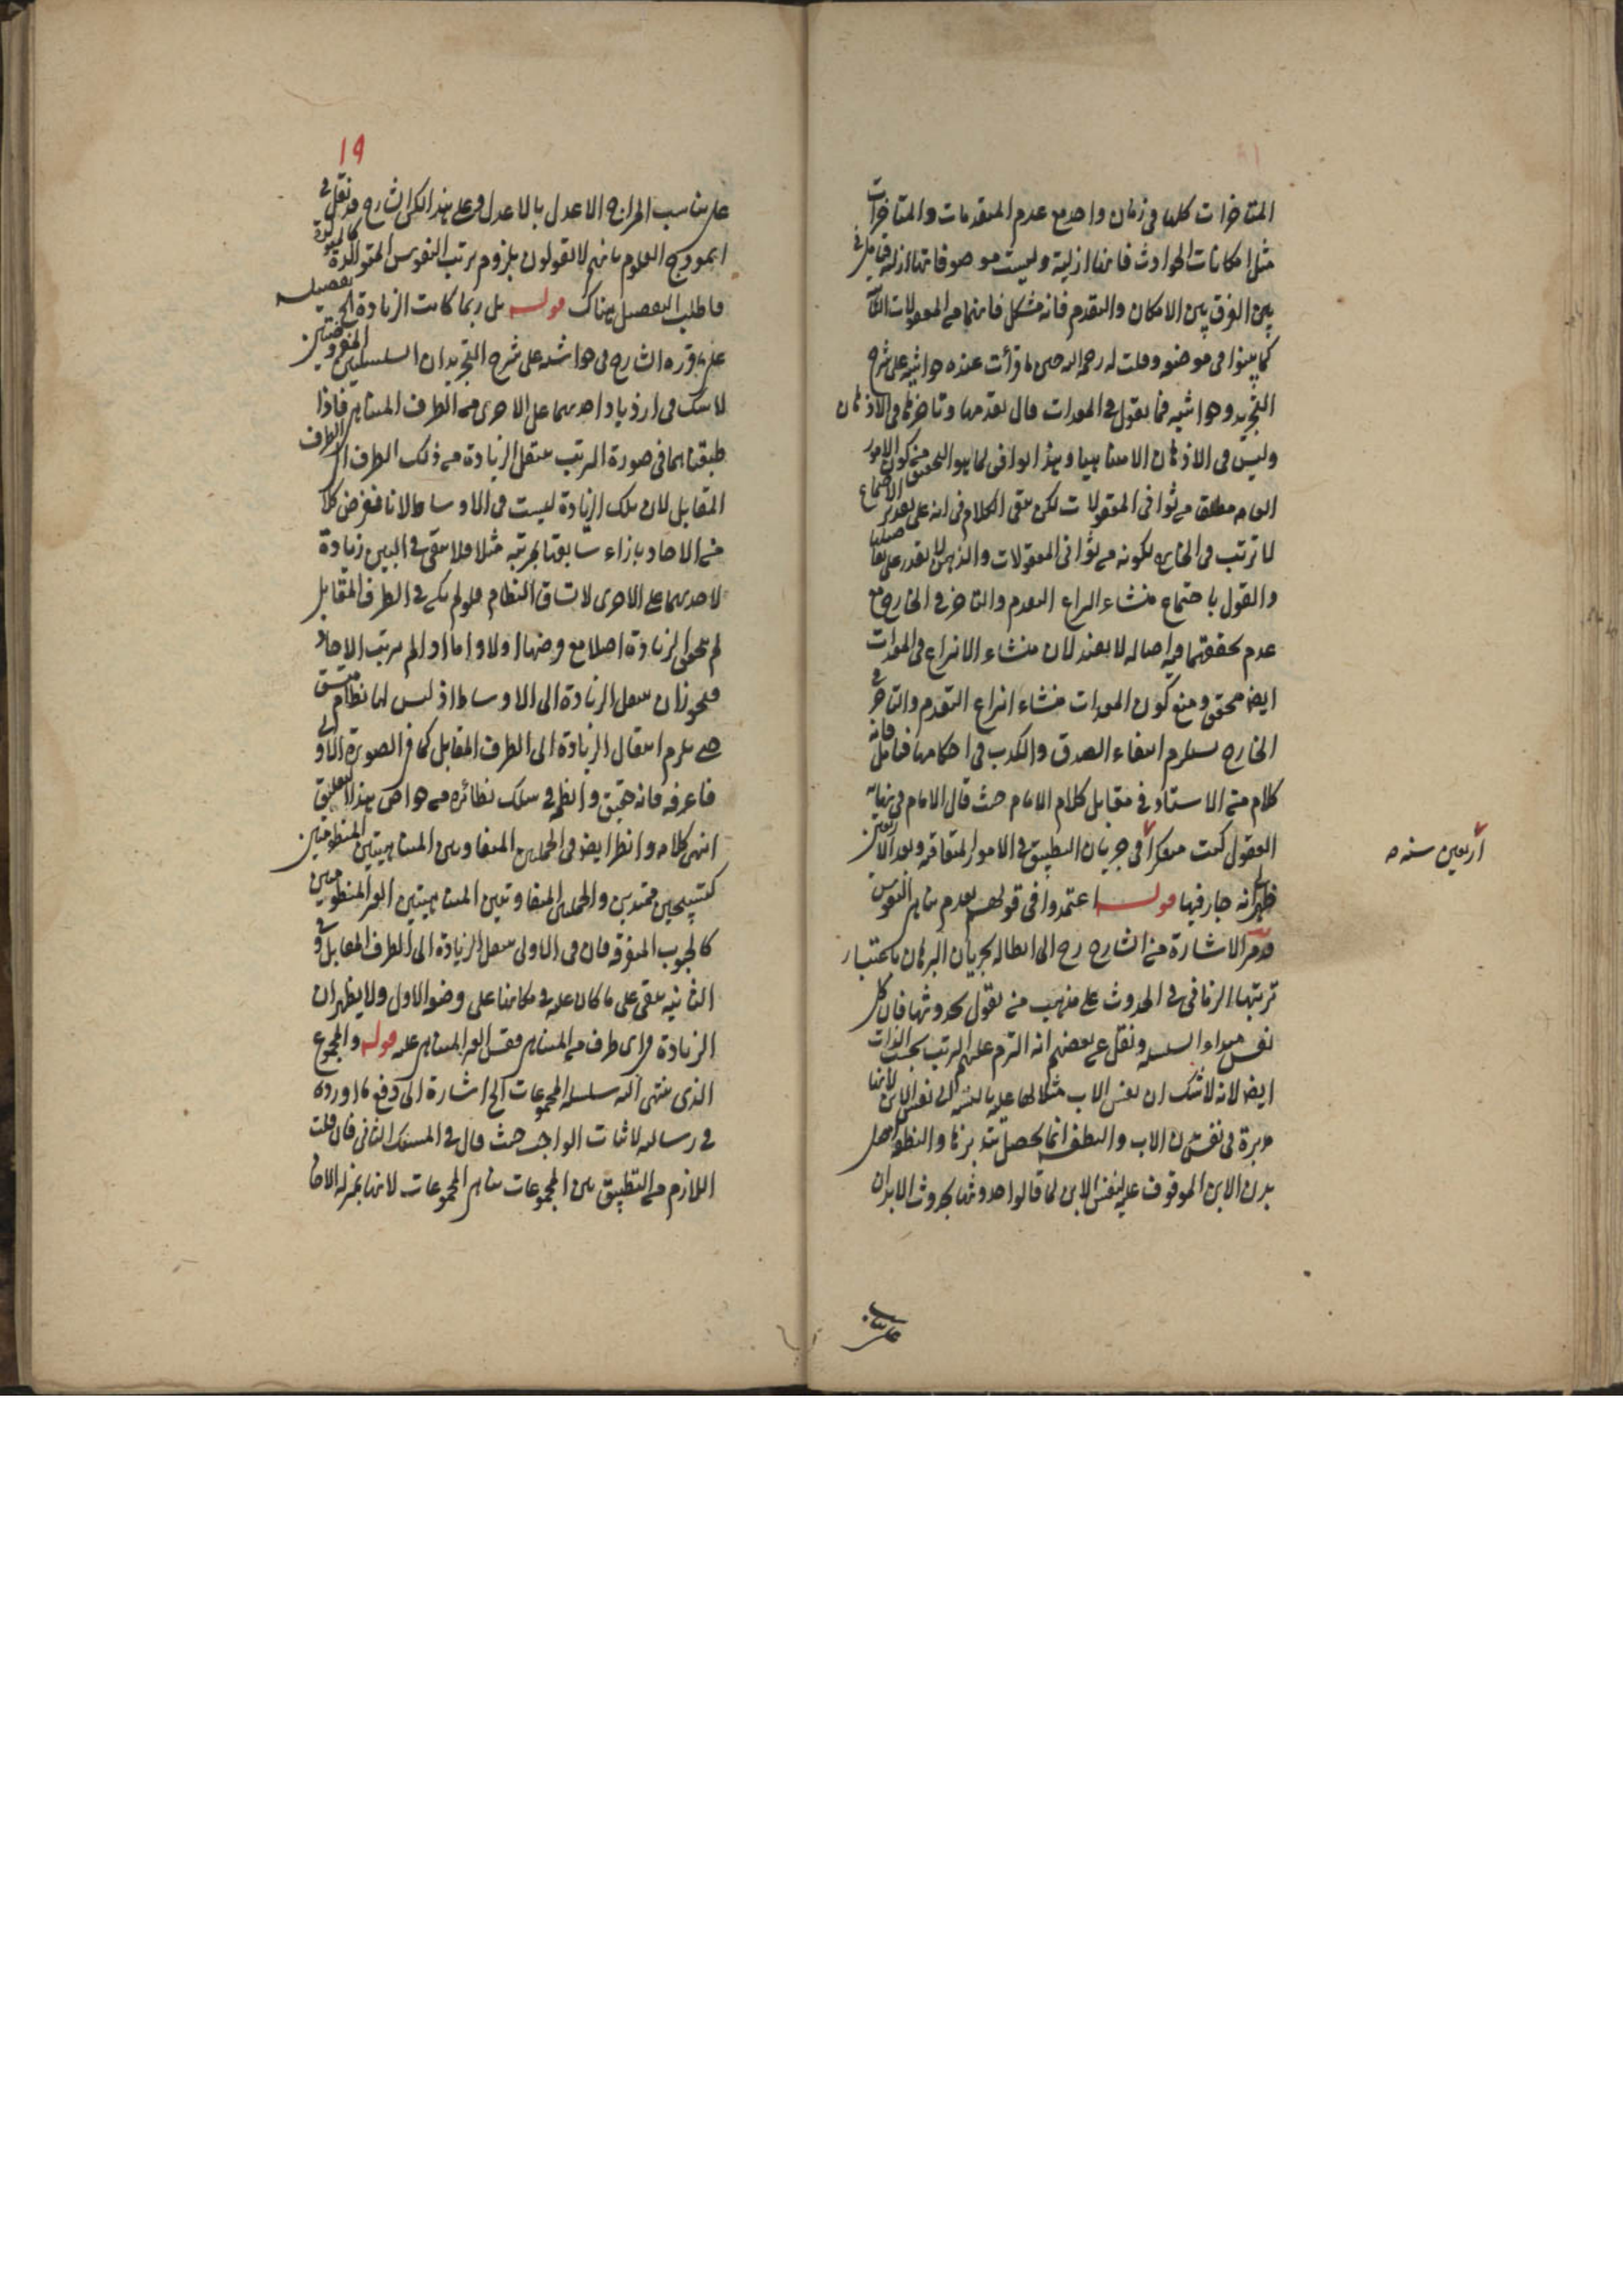 المتاخرات كلها فى زمان واحد مع عدم المتقدمات والمتاخرات
مثل امكانات الحوادث فانها ازلية وليست موصوفاتها ازلية فتامل فى
بين الفرق بين الامكان والتقدم فانه مشكل فانهما من المعقولات الثا
كما بينوا فى موضعه وقلت له رحمه الله حين ما قرأت عنده حواشيه على شرح
التجريد وحواشيه فما يقول فى المعدات قال تقدمها وتاخرها فى الاذهان
وليس فى الاذهان الا متناهيا وهذا يوافق لما هو التحقيق من كون الامور
العامه مطلقا من ثوانى المعقولات لكن بقى الكلام فى انه على تقدير الاجتماع
لا ترتب فى الخارج لكونه من ثوانى المعقولات والذهن لا يقدر على تفاصيلها
والقول باجتماع منشاء انتزاع التقدم والتاخر فى الخارج مع
عدم تحققهما فيه اصالة لا يفيد لان منشاء الانتزاع فى المعدات
ايضا محقق ومنع كون المعدات منشاء انتزاع التقدم والتاخر فى
الخارج يستلزم انتفاء الصدق والكذب فى احكامها فتامل فانه
كلام من الاستاد فى مقابل كلام الامام حيث قال الامام فى نهاية
العقول كنت متفكرا فى جريان التطبيق فى الامور المتعاقبة وبعد الاربعين
ظهر انه جار فيها قوله اعتمدوا فى قولهم بعدم تناهى النفوس
قد مر الاشارة من الشارح رح الى ابطاله بجريان البرهان باعتبار
ترتبها الزمانى فى الحدوث على مذهب من يقول بحدوثها فان كل
نفس مبداء السلسلة ونقل عن بعضهم انه التزم عليهم الترتب بحسب الذات
ايضا لانه لا شك ان نفس الاب مثلا لها علية بالنسبة الى نفس الابن لانها
مدبرة فى نفس بدن الاب والنطفة انما يحصل بتدبيرها والنطفة اصل
بدن الابن الموقوف عليه نفس الابن لما قالوا حدوثها بحدوث الابدان
أربعين سنه صه
على تناسب المزاج الاعدل بالاعدل وعلى هذا لكن الشارح قد نقل فى
انموذج العلوم بانهم لا يقولون بلزوم ترتب النفوس المتوالدة كالمتولدة
فاطلب التفصيل هناك قوله بل ربما كانت الزيادة الخ تفصيله
على ما قرره الشارح فى حواشيه على شرح التجريد ان السلسلتين المفروضتين
لا شك فى ازدياد احديهما على الاخرى من الطرف المتناهى فاذا
طبقناهما فى صورة الترتب ينتقل الزيادة من ذلك الطرف الى الطرف
المقابل لان تلك الزيادة ليست فى الاوساط لانا نفرض كلا
من الاحاد بازاء سابقتا بمرتبة مثلا فلا يبقى فى البين زيادة
لاحديهما على الاخرى لاتساق النظام فلو لم يكن فى الطرف المقابل
لم يتحقق الزيادة اصلا مع فرضها اولا واما اذا لم يترتب الاحاد
فيجوز ان ينتقل الزيادة الى الاوساط اذ ليس لها نظام متسق
حتى يلزم انتقال الزيادة الى الطرف المقابل كما فى الصورة الاولى
فاعرفه فانه حقيق وانظمه فى سلك نظائره من خواص هذا التعليق
انتهى كلامه وانظر ايضا فى الجملتين المتفاوتتين المتناهيتين المنظومتين
كتسبيحين ممتدين والجملتين المتفاوتتين المتناهيتين الغير المنظومتين
كالحبوب المتفرقة فان فى الاولى ينتقل الزيادة الى الطرف المقابل وفى
الثانيه يبقى على ما كان عليه فى مكانها على وضع الاول ولا يظهر ان
الزيادة فى اى طرف من المتناهى فقس الغير المتناهى عليه قوله والمجموع
الذى ينتهى اليه سلسلة المجموعات الخ اشارة الى دفع ما اورده
فى رسالته لاثبات الواجب حيث قال فى المسلك الثانى فان قلت
اللازم من التطبيق بين المجموعات تناهى المجموعات لانها بمنزلة الاحا